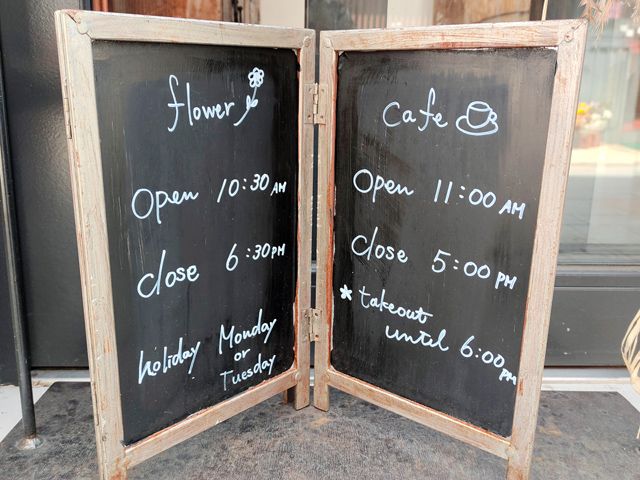 flower
Open 10:30 AM
close 6:30 PM
holiday Monday
or
Tuesday
Cafe
Open 11:00 AM
close 5:00 PM
* takeout
until 6:00 PM